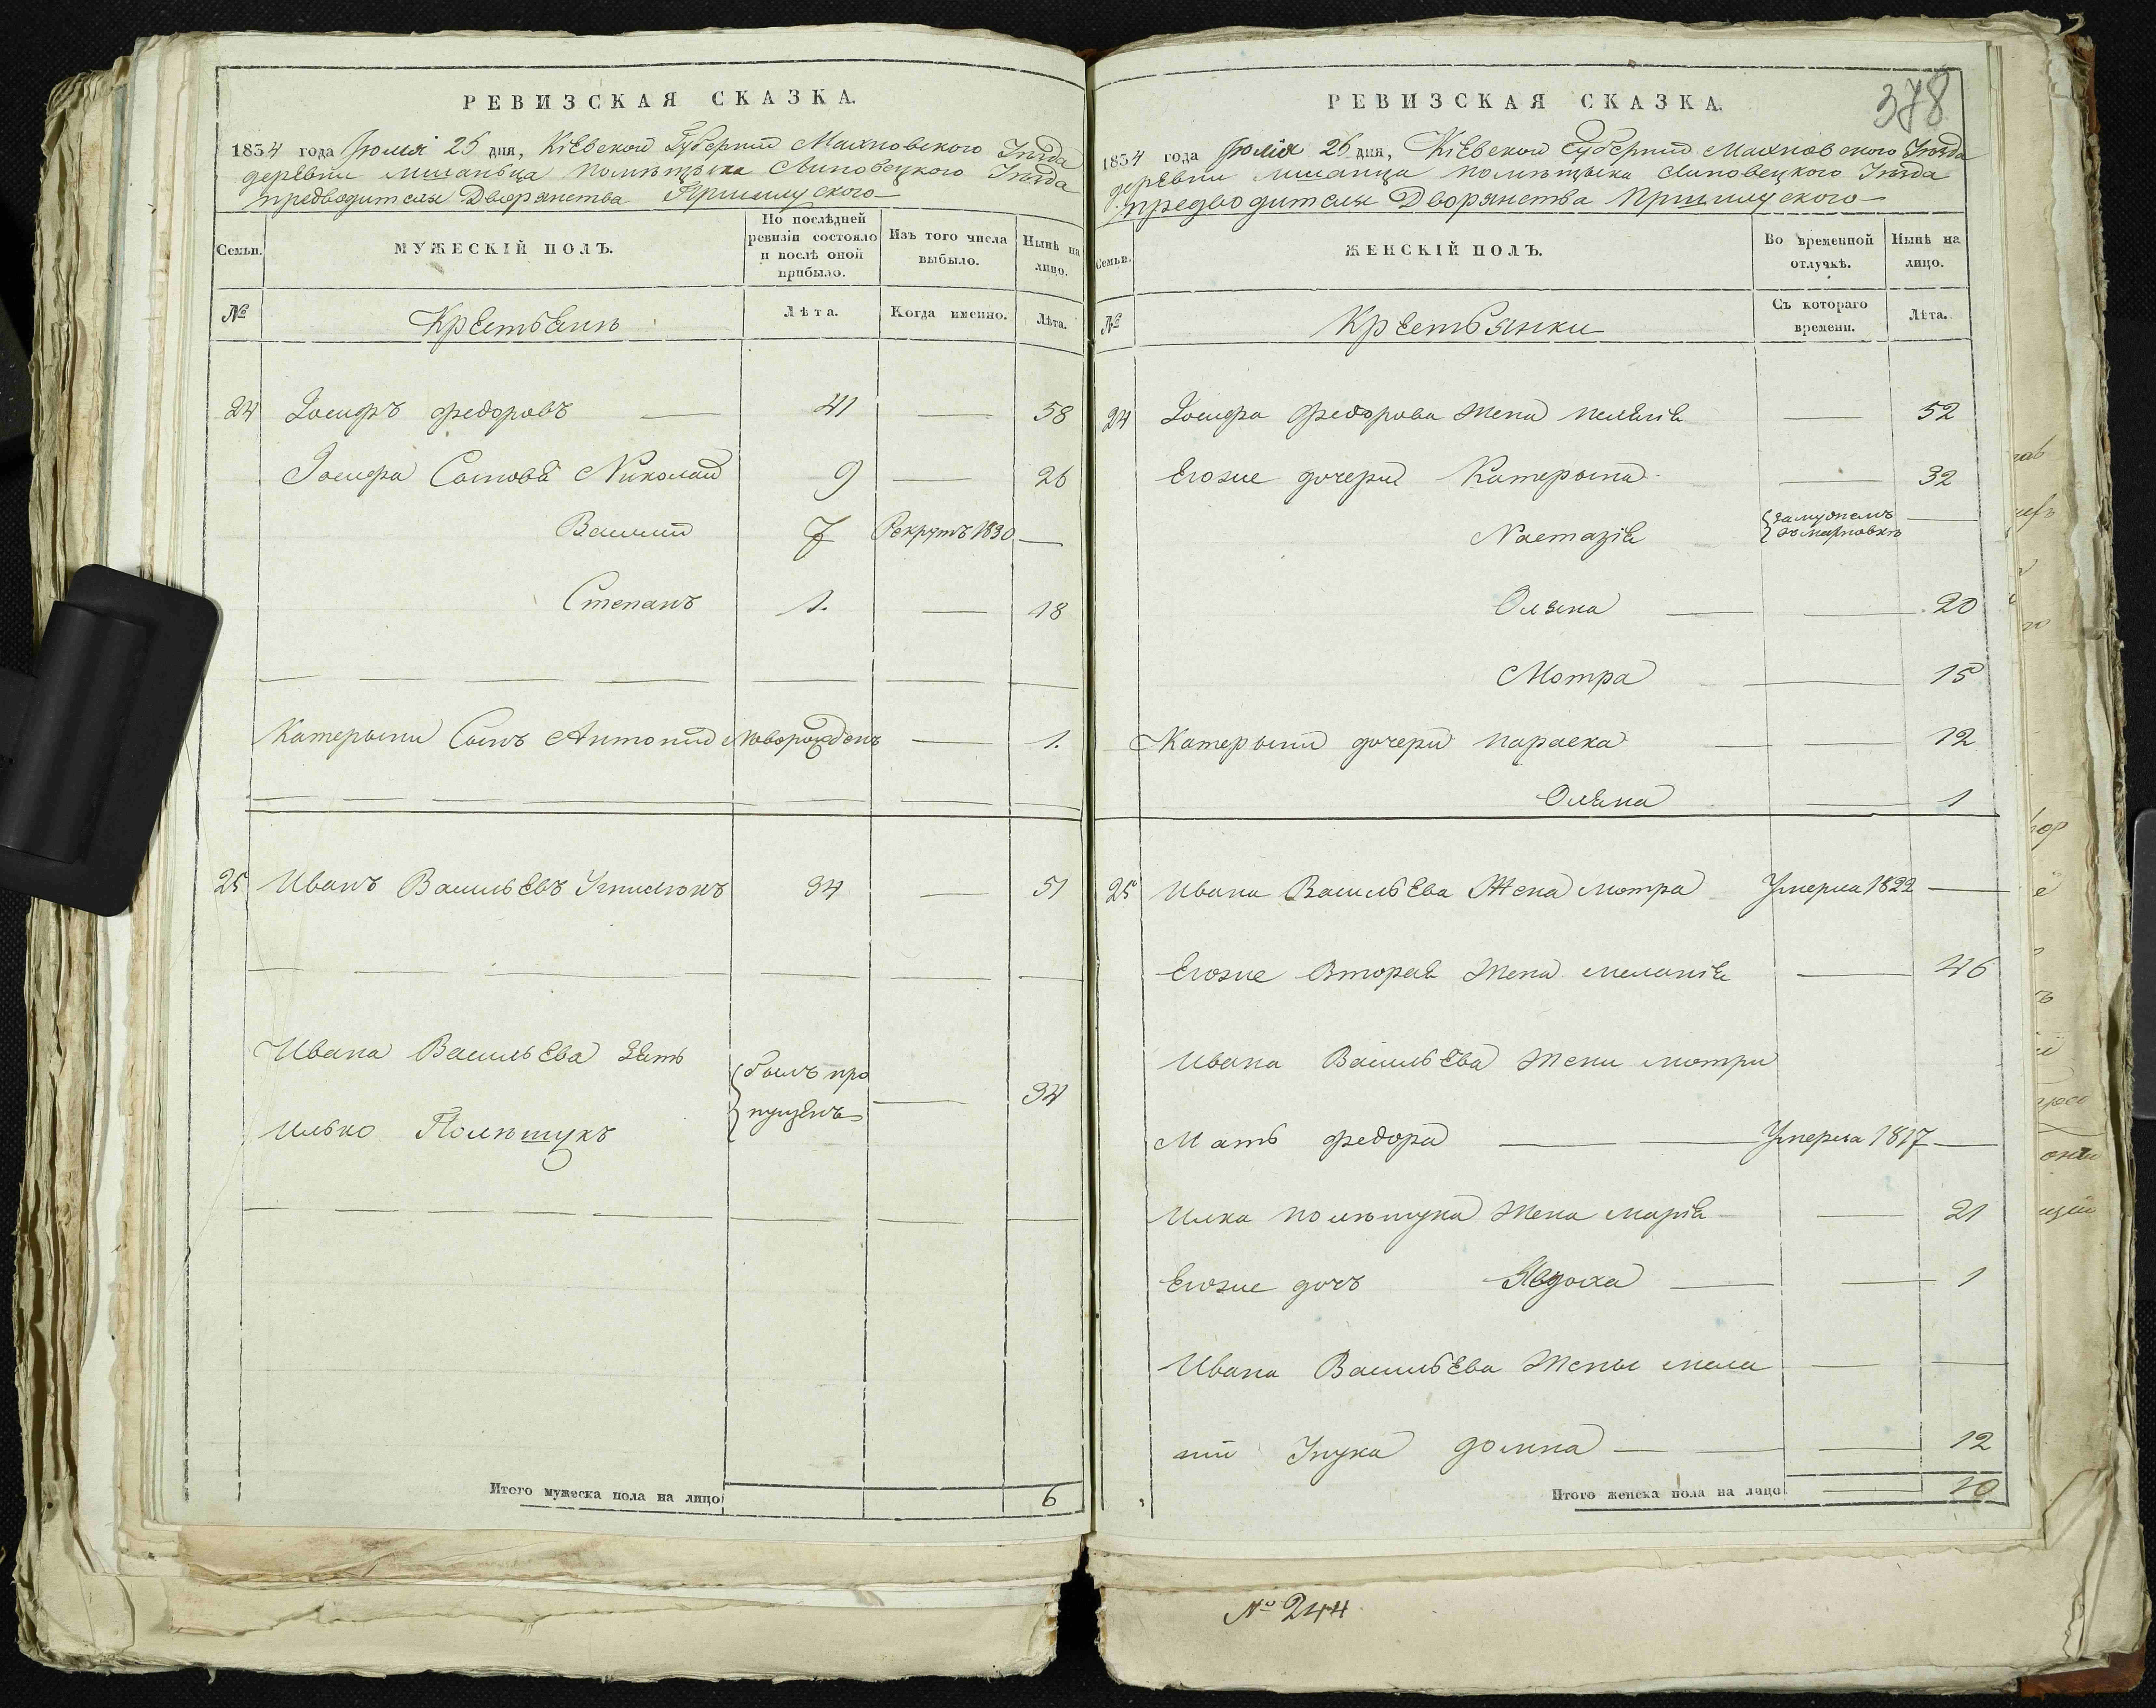 РЕВИЗСКАЯ СКАЗКА.
1834 года Іюля 25 дня, Кіевской Губерніи Махновского Уѣзда
деревни Мшаньца помѣщыка Липовецкого Уѣзда
предводителя Дворянства
По послѣдней ревизіи состояло и послѣ оной прибыло.
Семьи. МУЖЕСКІЙ ПОЛЪ. Изъ того числа выбыло. Нынѣ на лицо.
№ Крестьенъ Лѣта. Когда именно. Лѣта.
24 Іосифъ Федоровъ — 41 — 58
Іосифа Сыновѣ Николай 9 — 26
Василий 7 Рекрутъ 1830 —
Степанъ 1. — 18
Катерыни Сынъ Антоний Новорожденъ — 1.
25 Иванъ Васильевъ 34 — 51
Ивана Васильева Зять
Илько Полѣщукъ {былъ пропущенъ — 34
Итого мужеска пола на лицо 6
378
РЕВИЗСКАЯ СКАЗКА.
1834 года Іюлія 26 дня, Кіевской Губерніи Махновского Уѣзда
деревни Мшанца помѣщыка Липовецкого Уѣзда
предводителя Дворянства
Семьи. ЖЕНСКІЙ ПОЛЪ. Во временной отлучкѣ. Нынѣ на лицо.
№ Крестьянки Съ котораго времени. Лѣта.
24 Іосифа Федорова жена — 52
Егоже дочери Катерына — 32
Настазія {замужемъ —
Оляна — — 20
Мотра — 15
Катерыни дочери Параска — — 12
Оляна — 1
25 Ивана Васильева Жена Мотра Умерла 1822 —
Егоже Вторая жена Меланія — 46
Ивана Васильева жени Мотри
Мать Федора — Умерла 1817 —
Илка Полѣщука жена Марія — 21
Егоже дочъ Явдоха — — 1
Ивана Васильева жены Мела — —
ніи Унука Домна — — 12
Итого женска пола на лицо — 10
№ 244